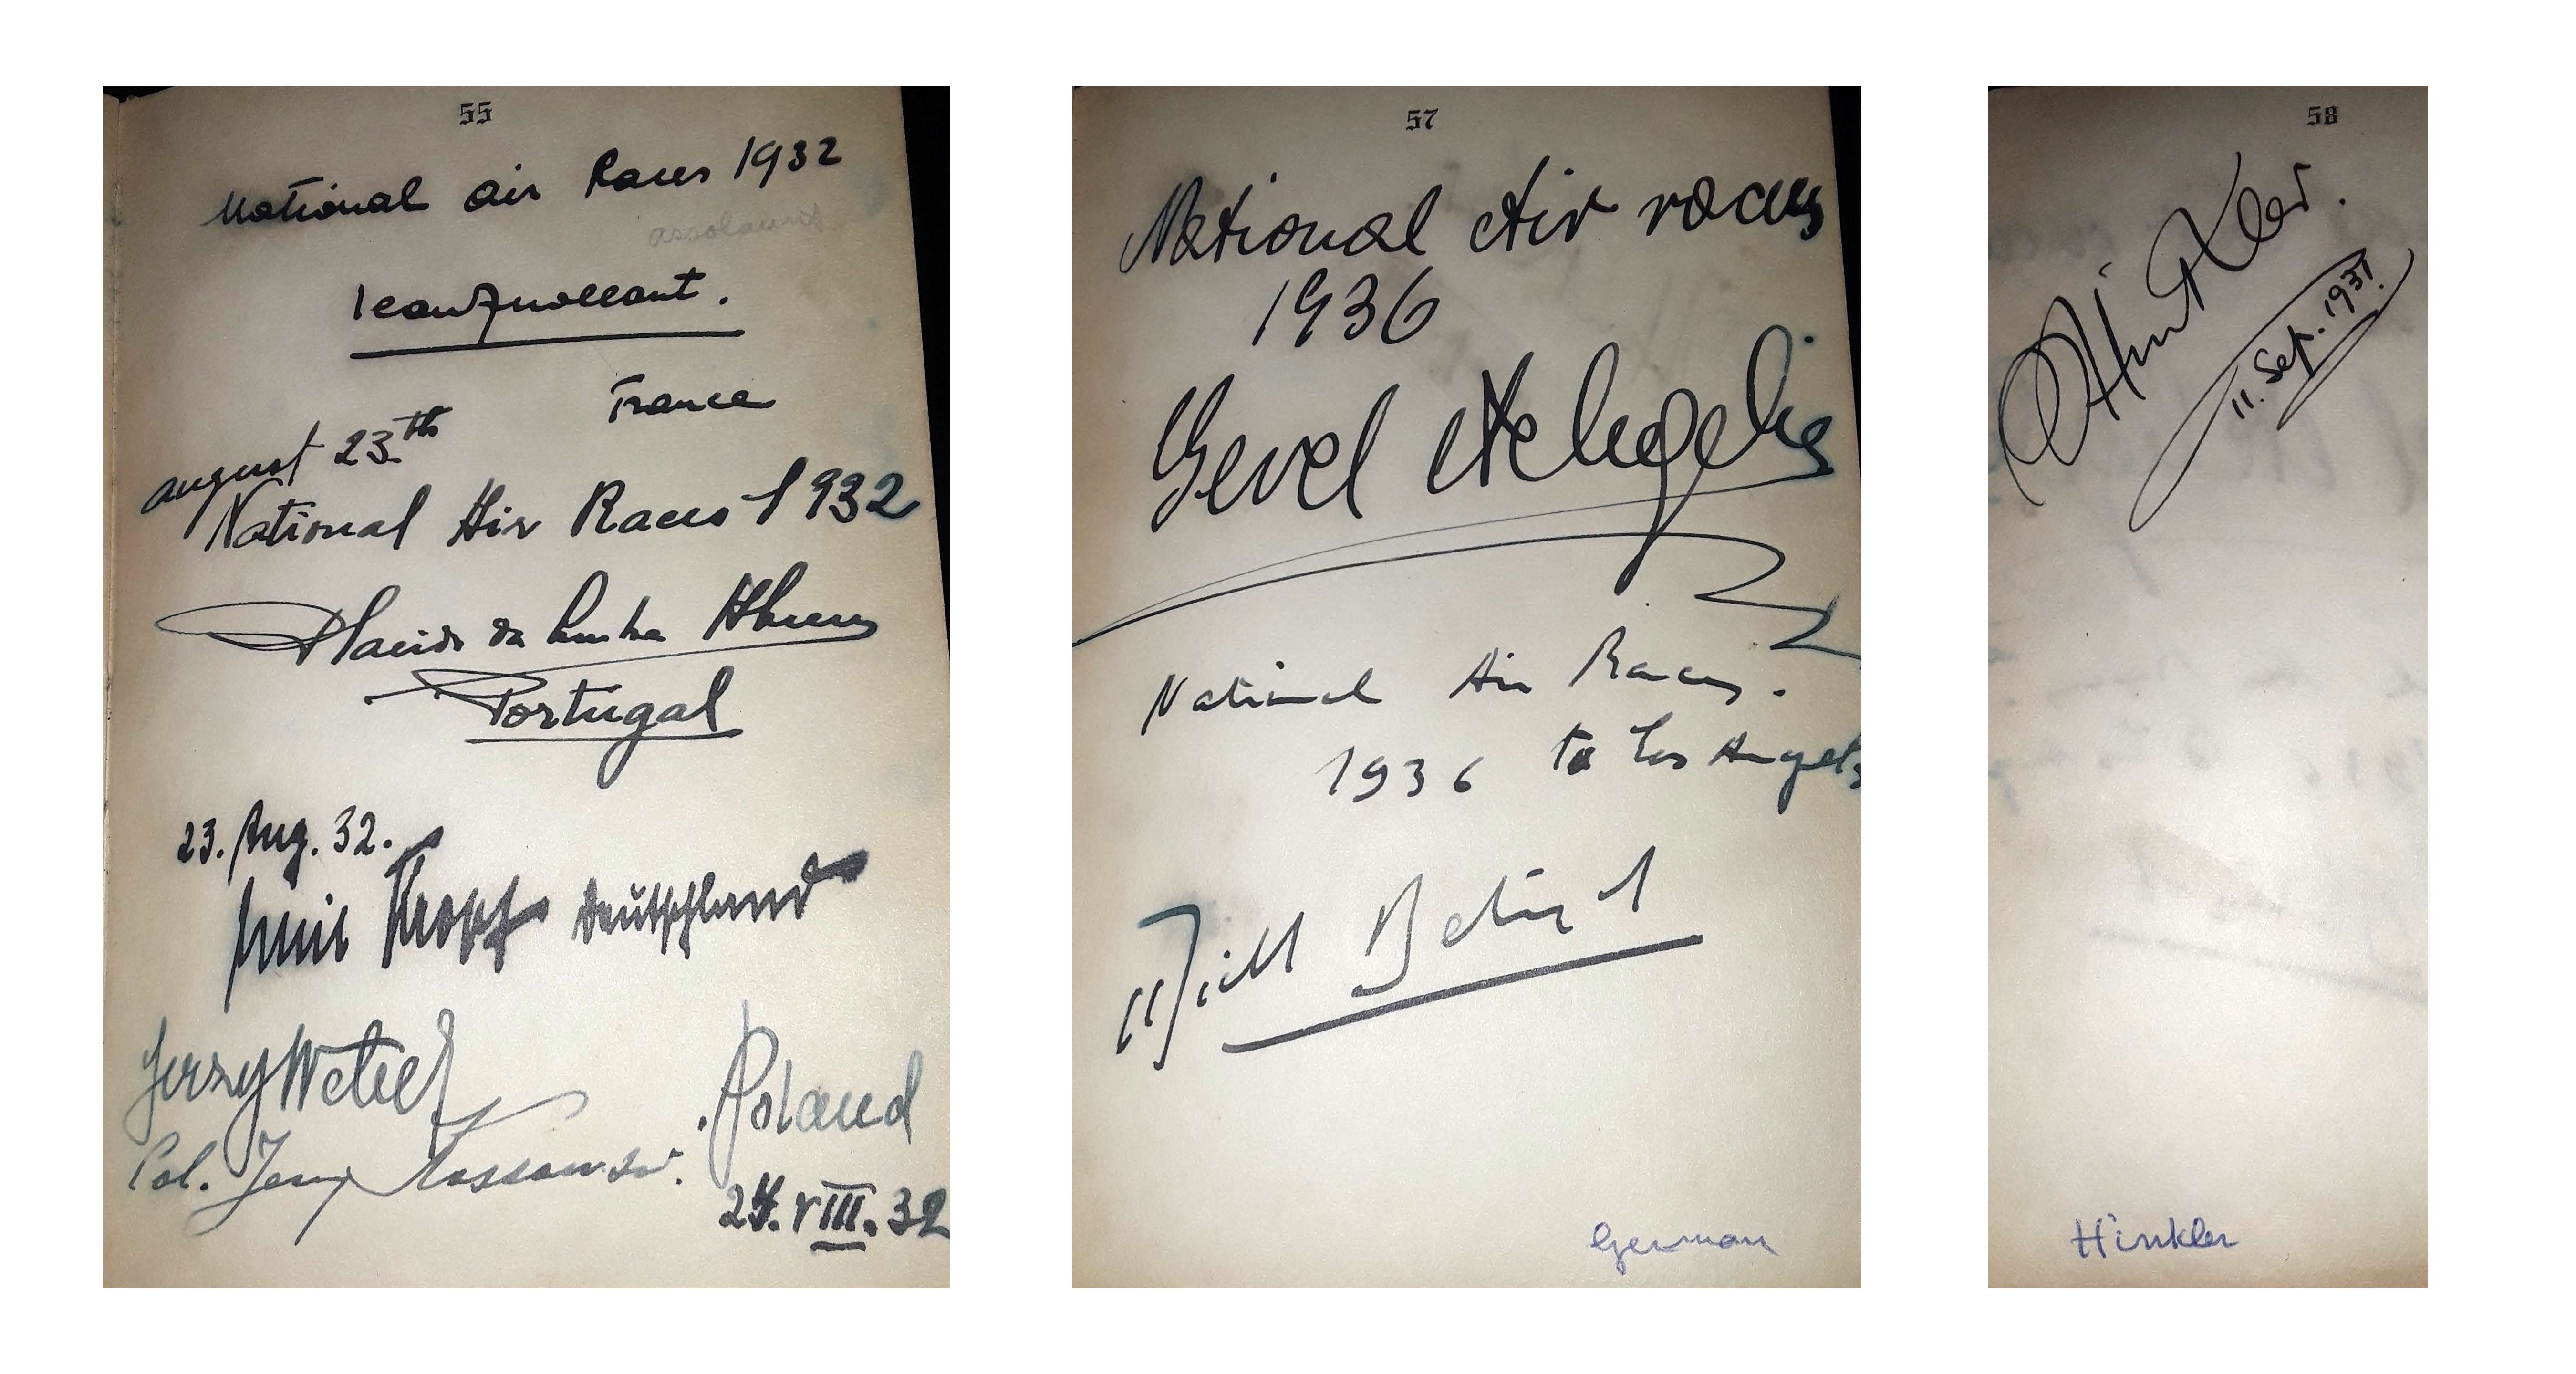 55
National air Races 1932
assolant
Jean Assollant.
France
august 23th
National Air Races 1932
Placido da Cunha Abreu
Portugal
23. Aug. 32.
Emil Kropf Deutschland
Jerzy
Poland
Col. Jerzy Kossowski.
24. VIII. 32
57
National Air races
1936
Gerd Achgelis
National Air Races.
1936 to Los Angeles
German
58
Hinkler.
11. Sep. 1931.
Hinkler